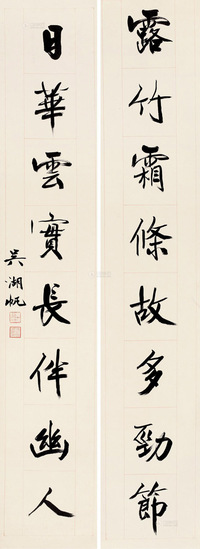 露竹霜條故多勁節
日華雲實長伴幽人
吳湖帆